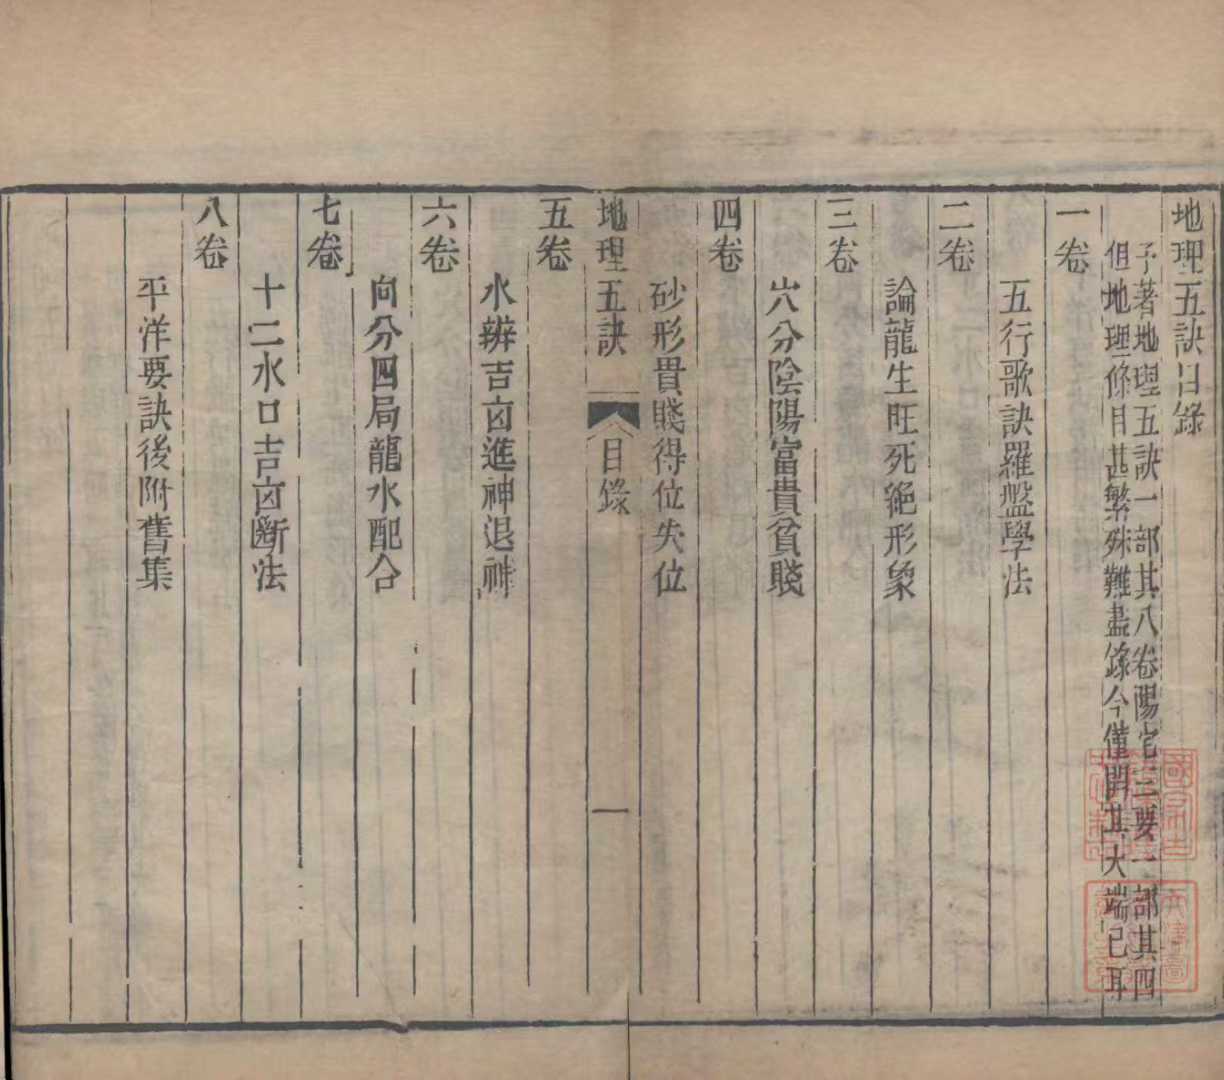 地理五訣目錄
予著地理五訣一部其八卷陽宅三要一部其四
但地理條目甚繁殊難盡錄今僅開其大端已耳
一卷
五行歌訣羅盤學法
二卷
論龍生旺死絕形象
三卷
穴分陰陽富貴貧賤
四卷
砂形貴賤得位失位
地理五訣
目錄
一
五卷
水辨吉凶進神退神
六卷
向分四局龍水配合
七卷
十二水口吉凶斷法
八卷
平洋要訣後附舊集